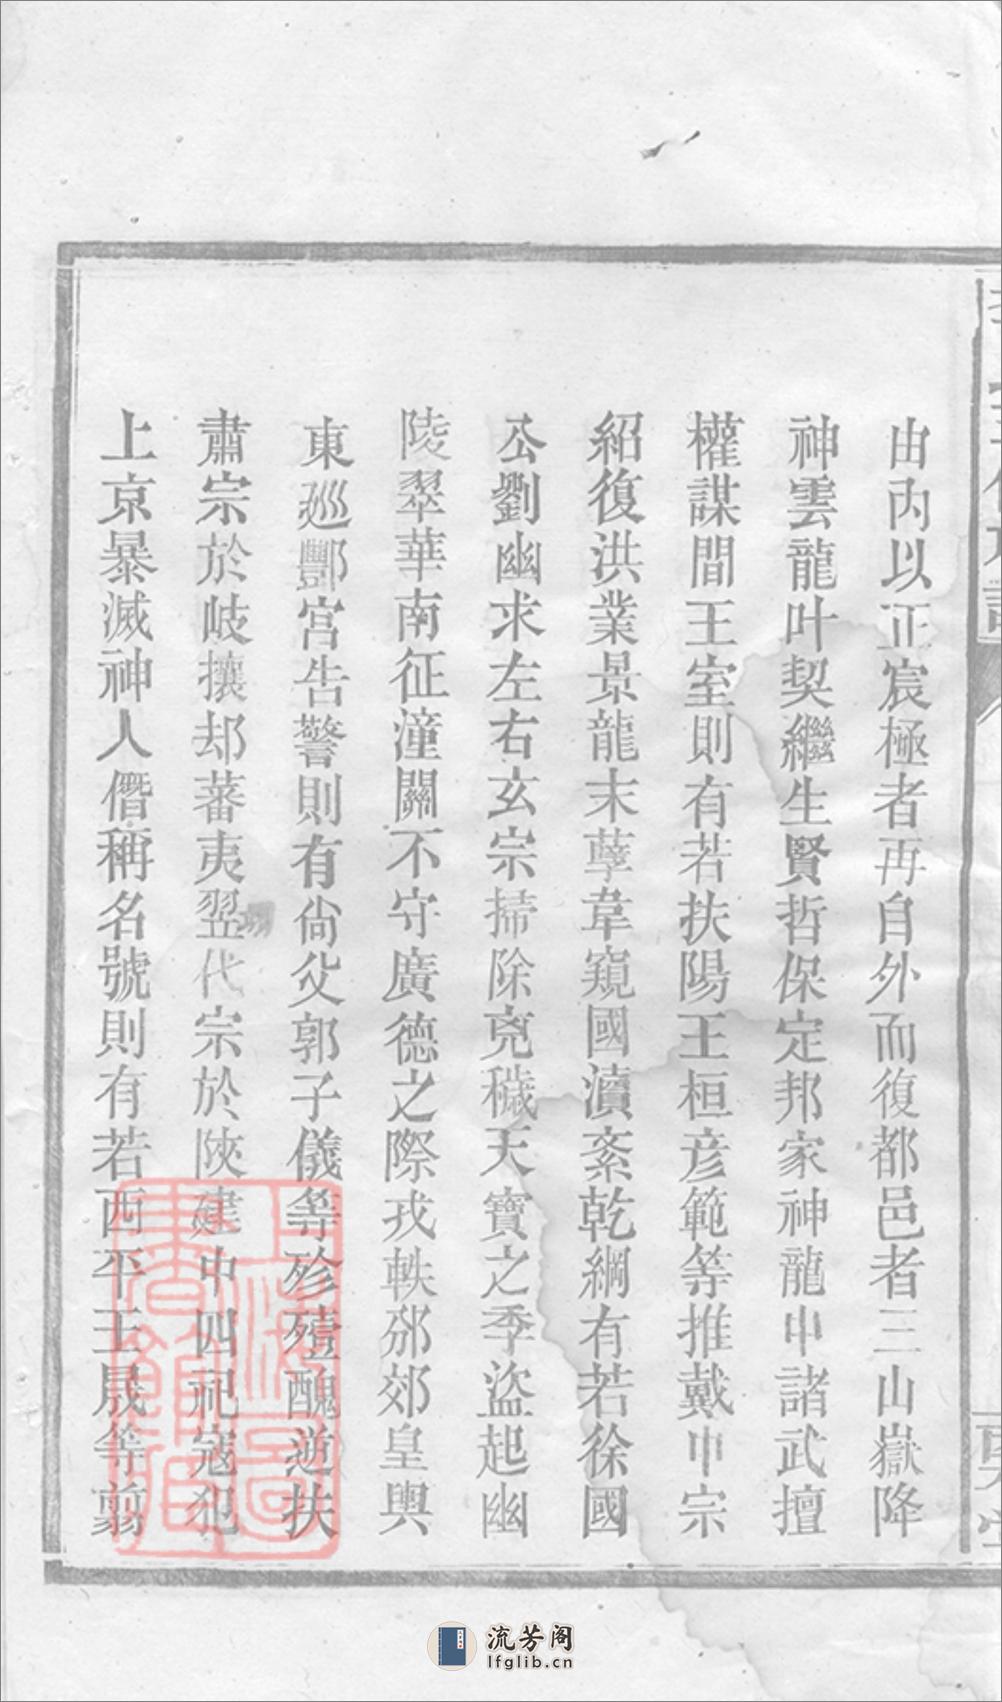 由內以正宸極者再自外而復都邑者三山嶽降
神雲龍叶契繼生賢哲保定邦家神龍中諸武擅
權謀間王室則有若扶陽王桓彥範等推戴中宗
紹復洪業景龍末孽韋窺國瀆紊乾綱有若徐國
公劉幽求左右玄宗掃除兇穢天寶之季盜起幽
陵翠華南征潼關不守廣德之際戎軼邠郊皇輿
東廵酆宮告警則有尙父郭子儀等殄殪醜逆扶
肅宗於岐攘却蕃夷翌代宗於陝建中四祀寇犯
上京暴滅神人僭稱名號則有若西平王晟等翦
上海圖書館藏
流芳阁
lfglib.cn